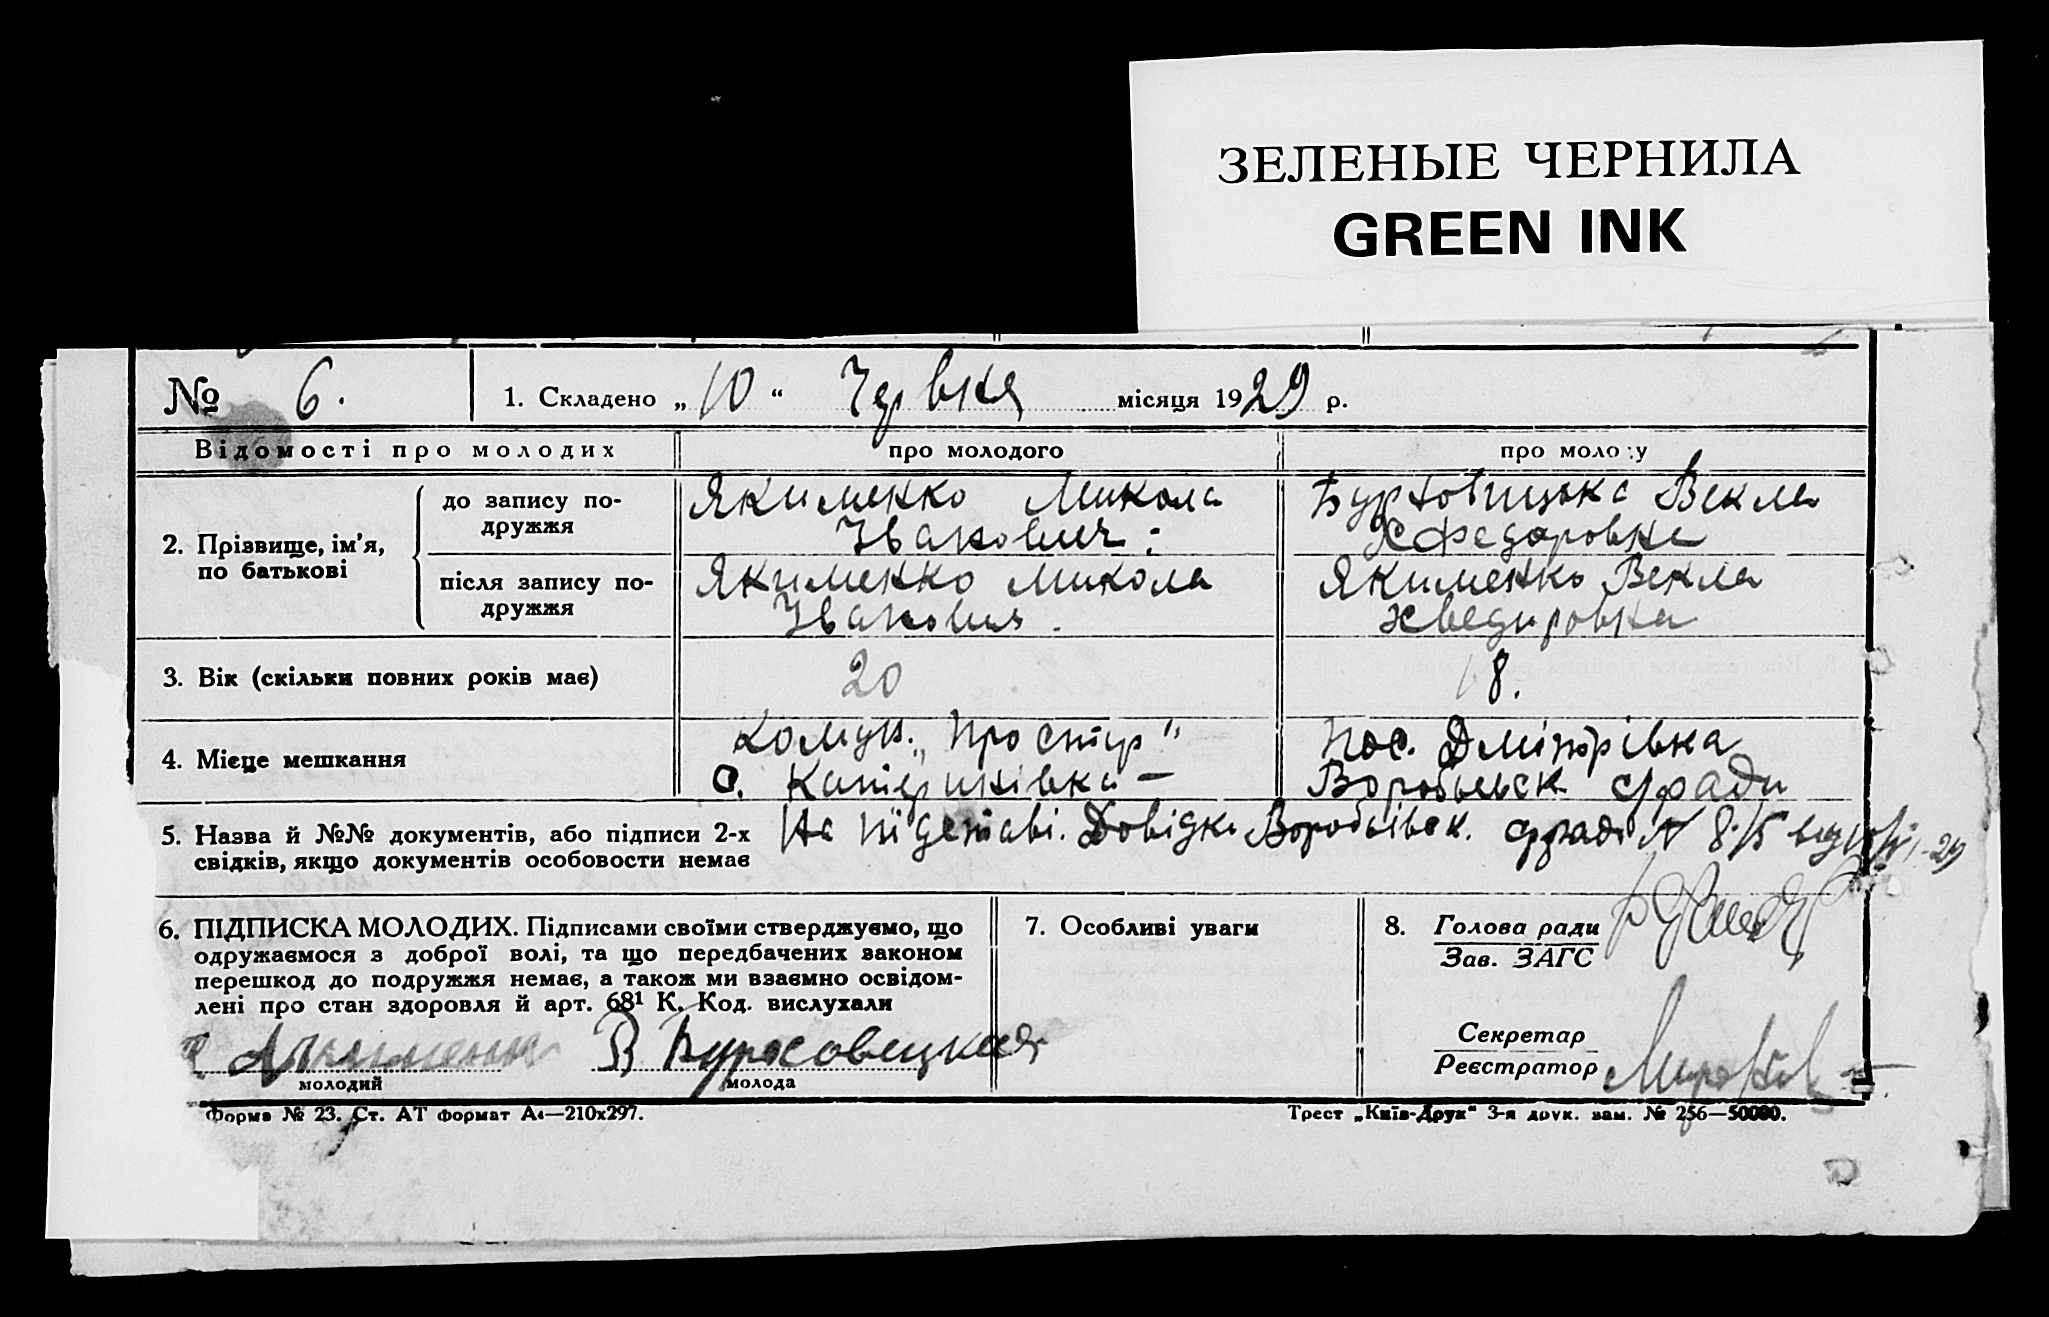 ЗЕЛЕНЫЕ ЧЕРНИЛА
GREEN INK
№ 6. 1. Складено „10“ Червня місяця 1929 р.
Відомості про молодих про молодого про молоду
2. Прізвище, ім’я, по батькові
до запису по-
дружжя
Якименко Микола
Іванович:
Векла
після запису по-
дружжя
Якименко Микола
Іванович.
Якименко Векла
Хведировна
3. Вік (скільки повних років має) 20 18.
4. Місце мешкання
Комун. „Простір"
с. Катеринівка –
Пос. Дмітрівка
Воробьевск с/ради
5. Назва й №№ документів, або підписи 2-х
свідків, якщо документів особовости немає
На підставі. Довідки Воробьівск. с/ради N 8/5
6. ПІДПИСКА МОЛОДИХ. Підписами своїми стверджуємо, що
одружаємося з доброї волі, та що передбачених законом
перешкод до подружжя немає, а також ми взаємно освідом-
лені про стан здоровля й арт. 68¹ К. Код. вислухали
Якименко В
молодий молода
7. Особливі уваги
8. Голова ради
Зав. ЗАГС
Секретар
Реєстратор
Форма № 23. Ст. АТ формат А₄—210х297.
Трест „Київ-Друк“ 3-я друк. зам. № 256—50000.